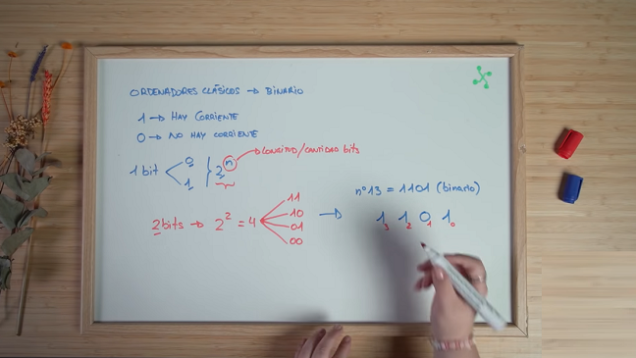 ORDENADORES CLÁSICOS → BINARIO
1 → HAY CORRIENTE
0 → NO HAY CORRIENTE
1 bit 0 1 } 2ⁿ → LONGITUD/CANTIDAD bits
2 bits → 2² = 4
11
10
01
00
→
nº 13 = 1101 (binario)
1₃ 1₂ 0₁ 1₀